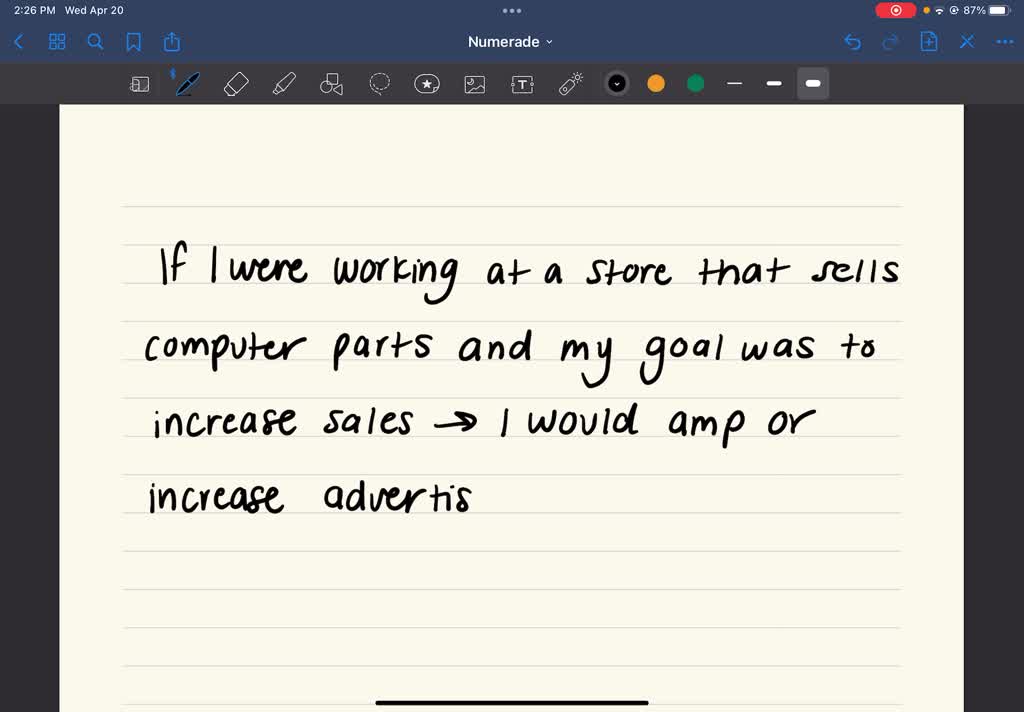 2:26 PM Wed Apr 20
87%
Numerade
T
If I were working at a store that sells
computer parts and my goal was to
increase sales → I would amp or
increase advertis